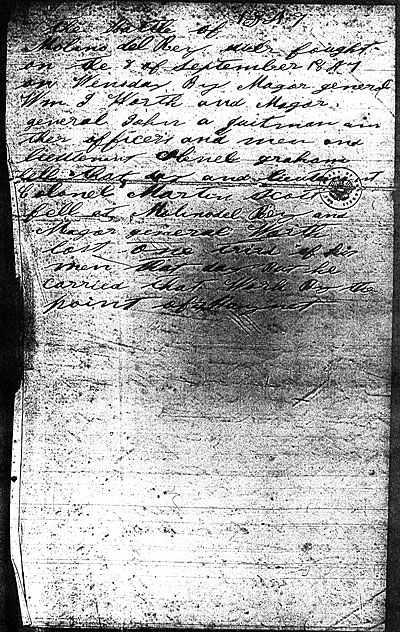 1847
The Battle of
Molino del Rey was fought
on the 8 of September 1847
on Wensday By Magor general
Wm J Worth and Magor
general John a quitman and
ther officers and men and
lieutenent Colonel graham
fell that day and lieutenent
Colonel Martin Scott
fell at Molino del Rey and
Magor general Worth
lost one third of his
men that day But he
carried that Work By the
point of the